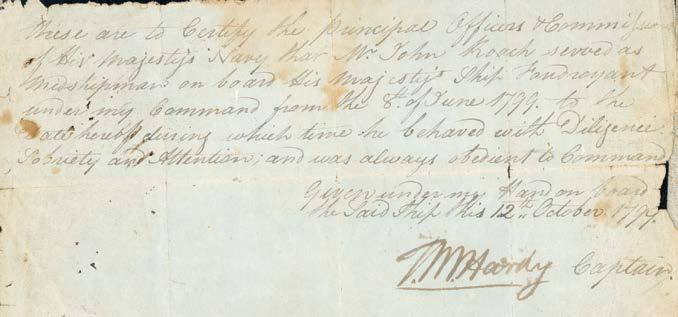 These are to Certify the Principal Officers & Commissioners
of His Majesty's Navy that Mr. John Roach served as
Midshipman on board His Majesty's Ship Foudroyant
under my Command from the 8th. of June 1799. to the
Date hereof during which time he behaved with Diligence
Sobriety and Attention; and was always obedient to Command
Given under my Hand on board
the Said Ship this 12th. October 1799.
T. M. Hardy Captain